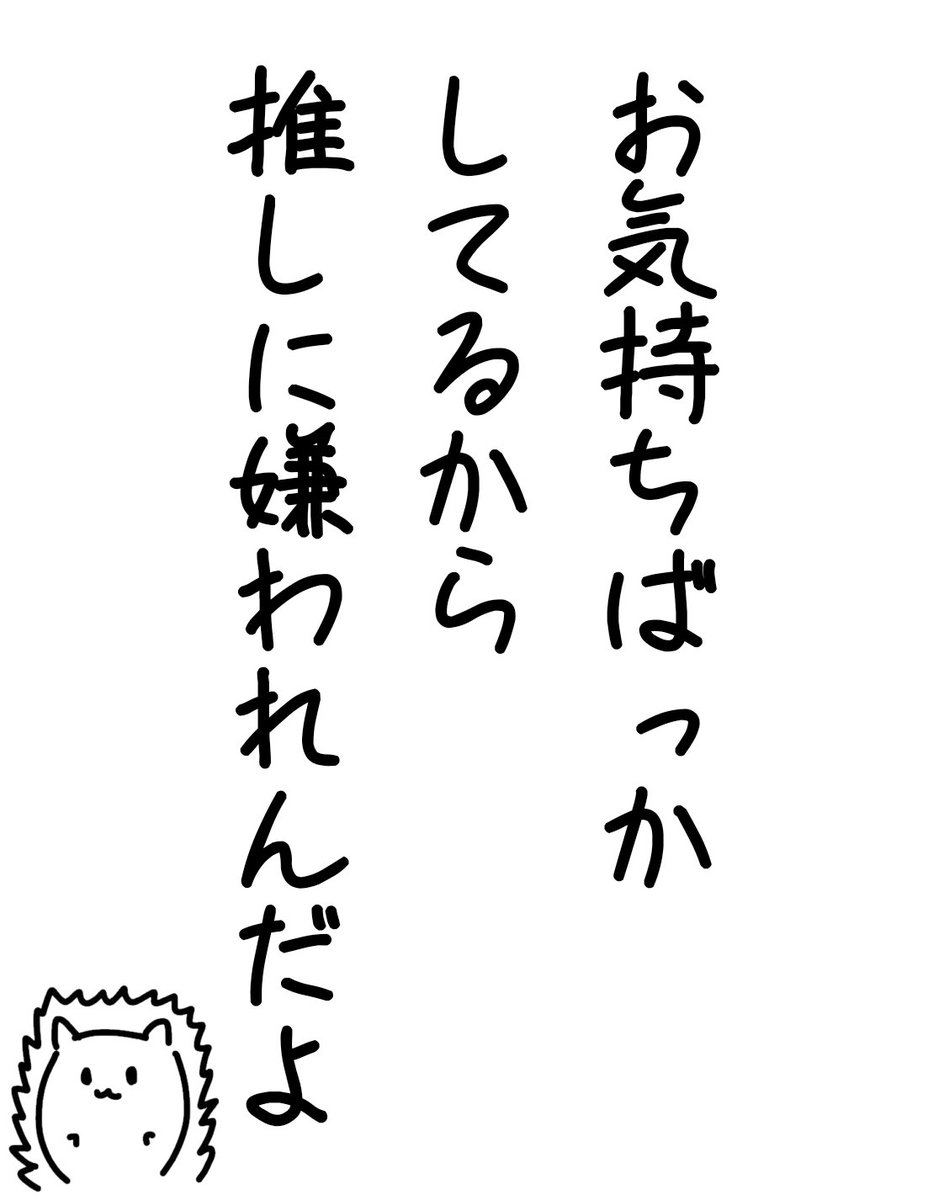 お気持ちばっか
してるから
推しに嫌われんだよ